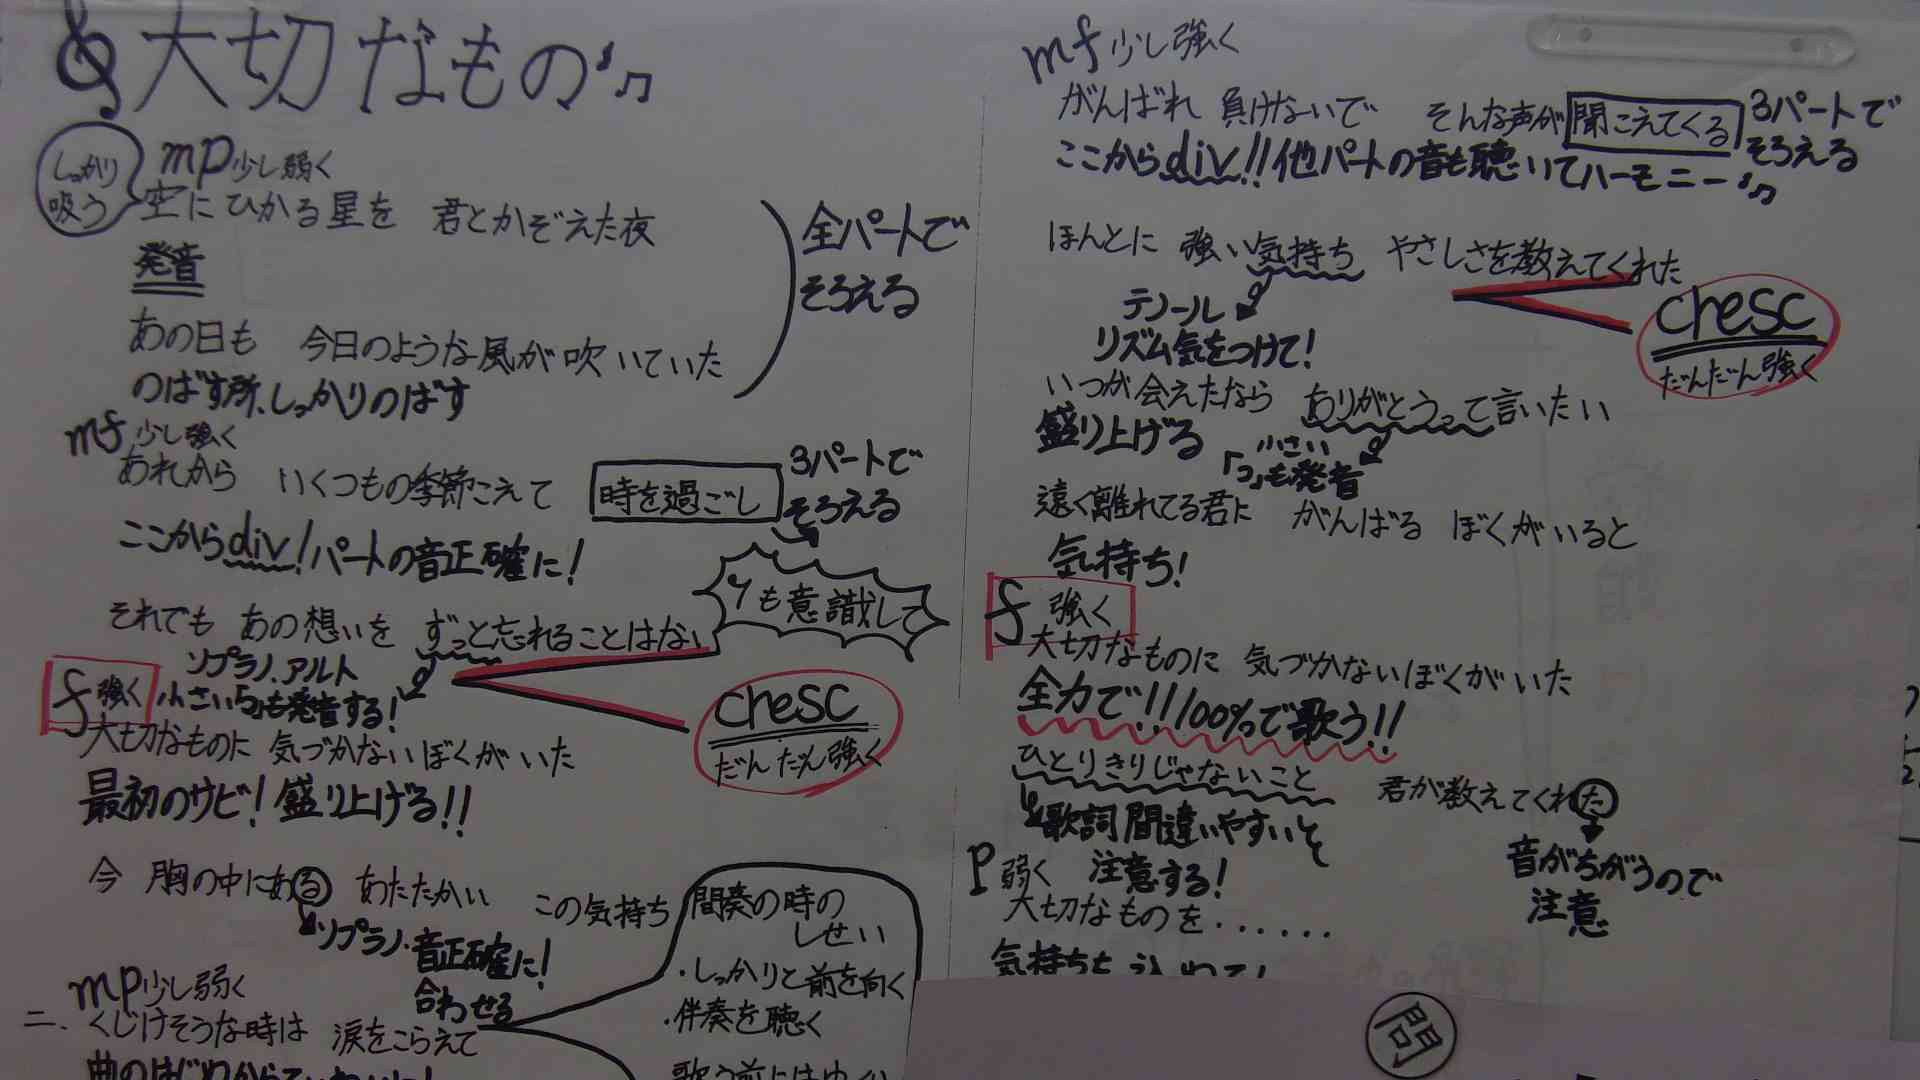 大切なもの
しっかり
吸う
mp少し弱く
空に ひかる星を 君とかぞえた夜
発音
全パートで
そろえる
あの日も 今日のような風が吹いていた
のばす所、しっかりのばす
mf 少し強く
あれから いくつもの季節こえて 時を過ごし
3パートで
そろえる
ここからdiv!パートの音正確に!
も意識して
それでも あの想いを ずっと忘れることはない
ソプラノ、アルト
小さい「っ」も発音する!
f 強く
chesc
だんだん強く
大切なものに 気づかないぼくがいた
最初のサビ!盛り上げる!!
今 胸の中にある あたたかい この気持ち
ソプラノ・音正確に!
合わせる
間奏の時の
しせい
・しっかりと前を向く
・伴奏を聴く
歌う前には
mp少し弱く
二、くじけそうな時は 涙をこらえて
mf 少し強く
がんばれ 負けないで そんな声が聞こえてくる
3パートで
そろえる
ここからdiv!!他パートの音も聴いてハーモニー
ほんとに 強い気持ち やさしさを教えてくれた
テノール
リズム気をつけて!
chesc
だんだん強く
いつか会えたなら ありがとうって言いたい
盛り上げる
小さい
「っ」も発音
遠く離れてる君に がんばる ぼくがいると
気持ち!
f 強く
大切なものに 気づかないぼくがいた
全力で!!100%で歌う!!
ひとりきりじゃないこと 君が教えてくれた
歌詞間違いやすいと
注意する!
音がちがうので
注意
P 弱く
大切なものを......
気持ちを
問